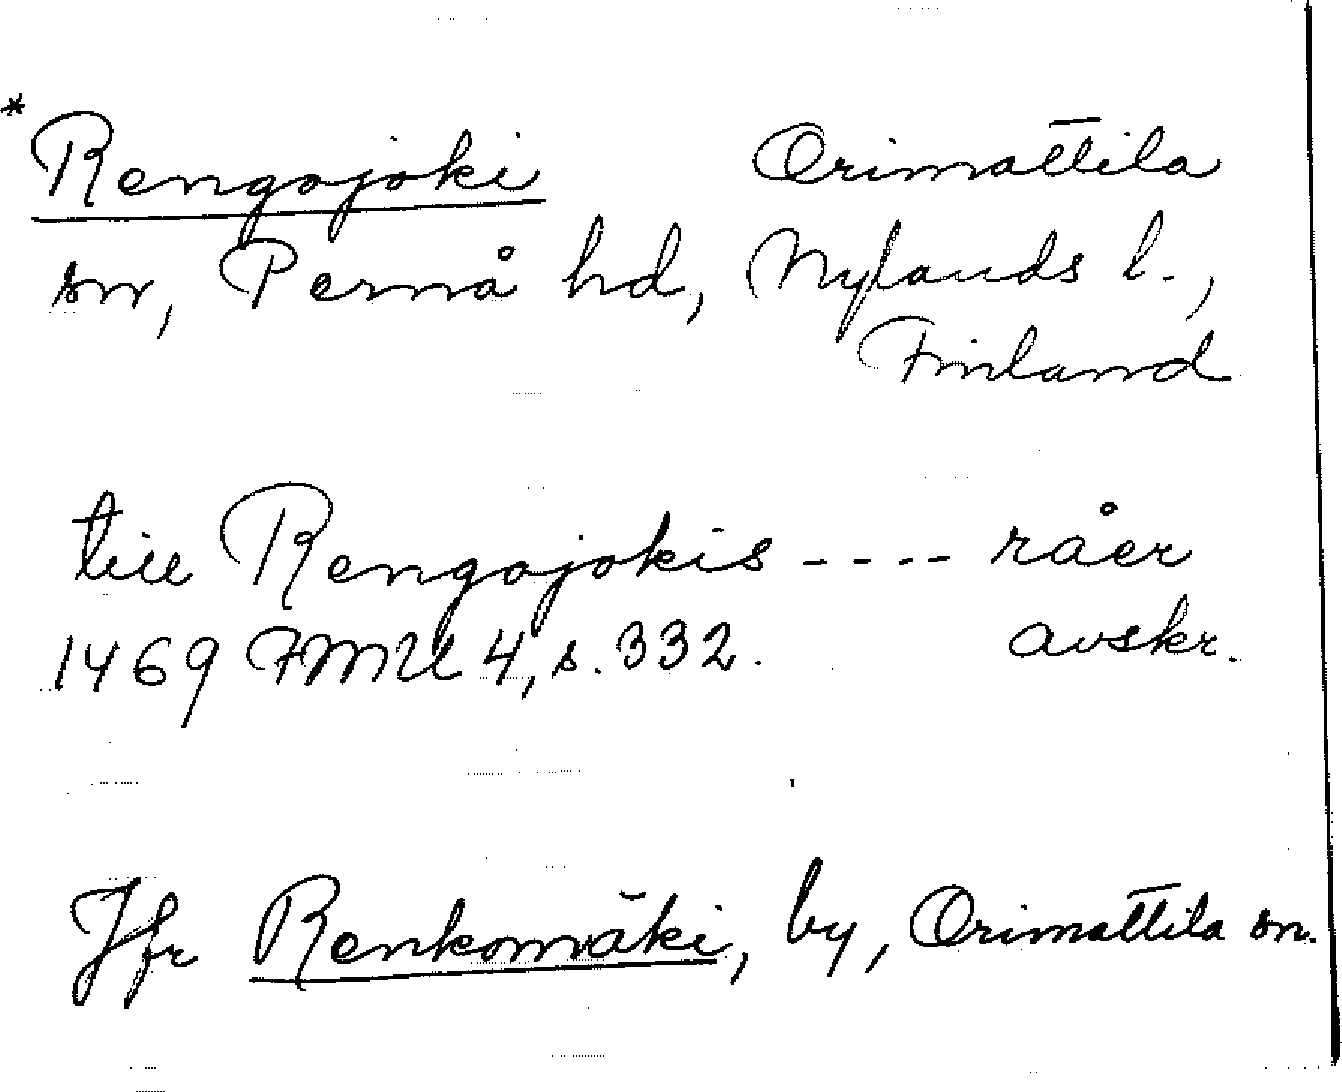 * Rengojoki Orimattila
sn, Pernå hd, Nylands l.,
Finland
till Rengojokis ---- råer
1469 FMU 4, s. 332. avskr.
Jfr Renkomäki, by, Orimattila sn.